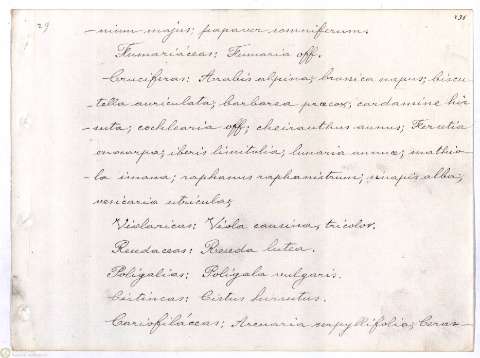 29
131
-nium majus; papaver somniferum.
Fumariáceas: Fumaria off.
Cruciferas: Arabis alpina; brassica napus; biscu-
-tella auriculata; barbarea præcox; cardamine hir-
suta; cochlearia off; cheiranthus annus;
onocarpa; iberis limifolia; lunaria annuæ; mathio-
la incana; raphanus raphanistrum; sinapis alba;
vesicaria utriculas;
Violaricas: Viola causina, tricolor.
Resedaceas: Reseda lutea.
Poligalias: Polígala vulgaris.
Cistincas: Cistus hirsutus.
Cariofiláceas: Arenaria serpyllifolia; Ceras-